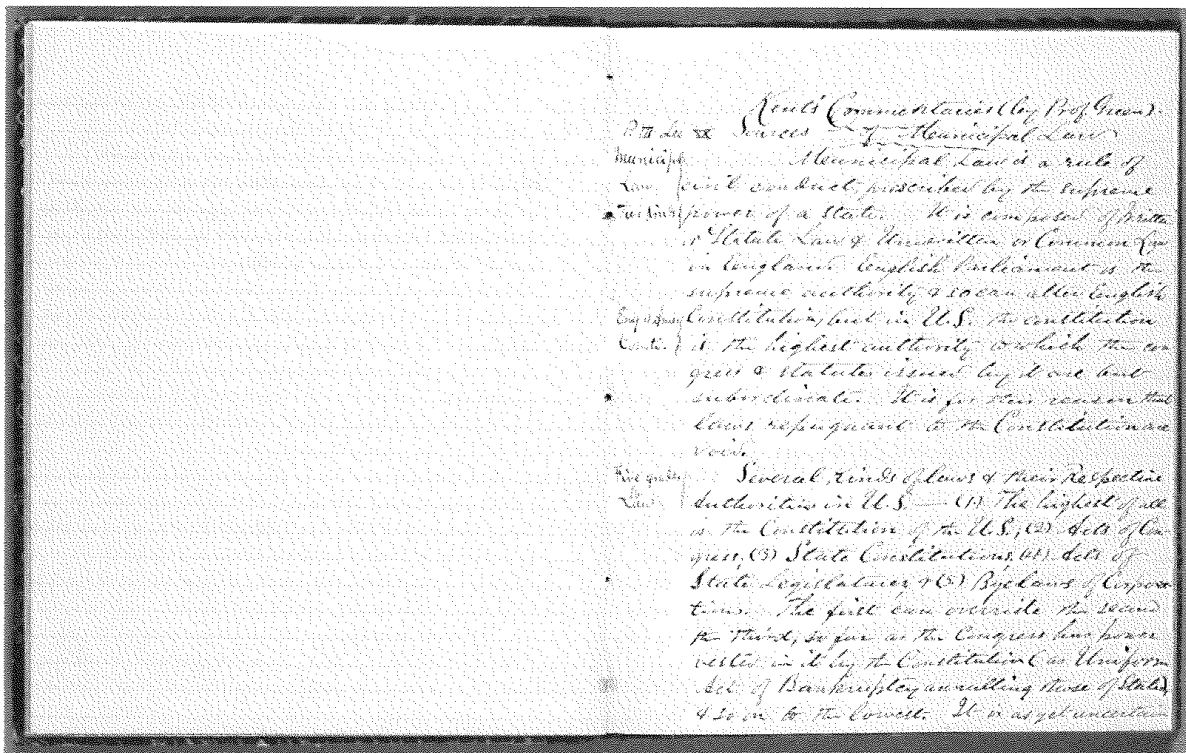 Kent's Commentaries (by Prof. Green).
Sources of Municipal Law
Municipal Law is a rule of
Municipal
Law civil conduct, prescribed by the supreme
power of a state. It is composed of Written
or Statute Law & Unwritten or Common Law
in England. English Parliament is the
supreme authority & so can alter English
Constitution, but in U.S. the constitution
is the highest authority to which the con
gress & statutes issued by it are but
subordinate. It is for this reason that
laws repugnant to the Constitution are
void.
Several Kinds of laws & their Respective
Law Authorities in U.S. — (1) The highest of all
is the Constitution of the U.S., (2) Acts of Con
gress, (3) State Constitutions, (4) Acts of
State Legislatures, & (5) Bye laws of Corpora
tions. The first can override the second
the third, so far as the Congress has power
vested in it by the Constitution (as Uniform
Act of Bankruptcy annulling those of States)
& so on to the lowest. It is as yet uncertain